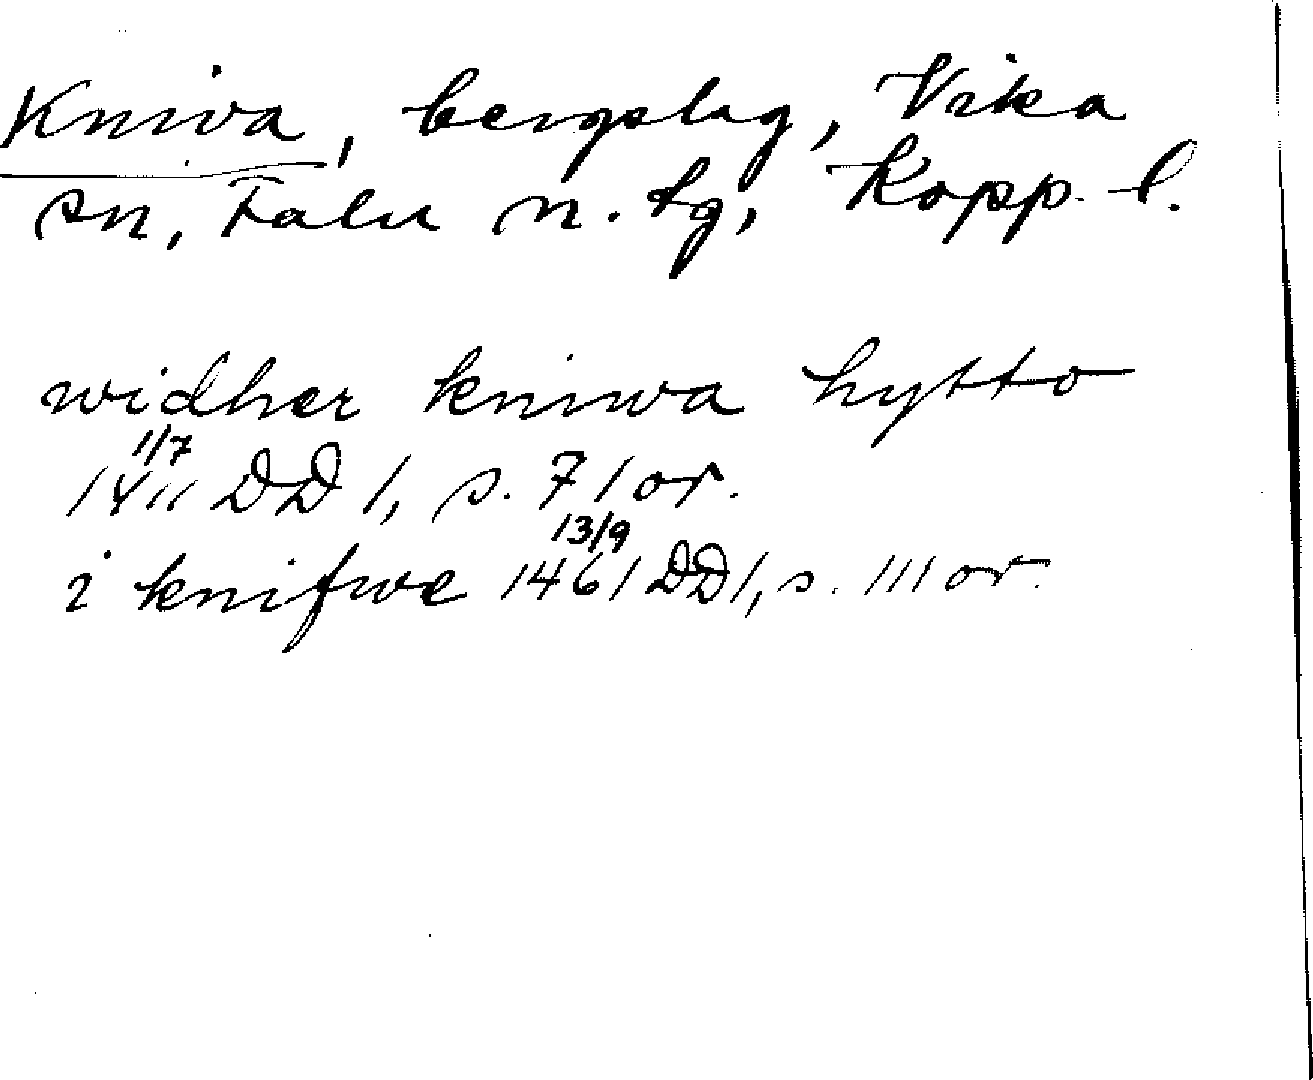 Kniva, bergslag, Vika
sn, Falu n. tg, Kopp. l.
widher kniwa hytto
1/7
1411 DD 1, s. 71 or.
13/9
i knifwe 1461 DD 1, s. 111 or.